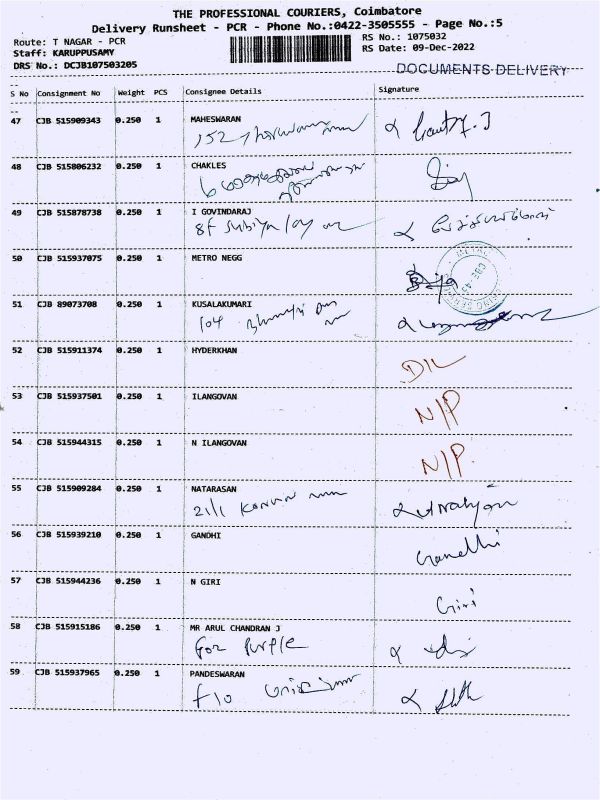 THE PROFESSIONAL COURIERS, Coimbatore
Delivery Runsheet - PCR - Phone No.:0422-3505555 - Page No.:5
Route: T NAGAR - PCR
RS No.: 1075032
Staff: KARUPPUSAMY
RS Date: 09-Dec-2022
DRS No.: DCJB107503205
DOCUMENTS DELIVERY
S No Consignment No Weight PCS Consignee Details Signature
47 CJB 515909343 0.250 1 MAHESWARAN
152
48 CJB 515806232 0.250 1 CHAKLES
49 CJB 515878738 0.250 1 I GOVINDARAJ
8f
50 CJB 515937075 0.250 1 METRO NEGG
51 CJB 89073708 0.250 1 KUSALAKUMARI
104
52 CJB 515911374 0.250 1 HYDERKHAN
D/L
53 CJB 515937501 0.250 1 ILANGOVAN
N/P
54 CJB 515944315 0.250 1 N ILANGOVAN
N/P
55 CJB 515909284 0.250 1 NATARASAN
21/1
56 CJB 515939210 0.250 1 GANDHI
Gandhi
57 CJB 515944236 0.250 1 N GIRI
Giri
58 CJB 515915186 0.250 1 MR ARUL CHANDRAN J
For Purple
59 CJB 515937965 0.250 1 PANDESWARAN
F10